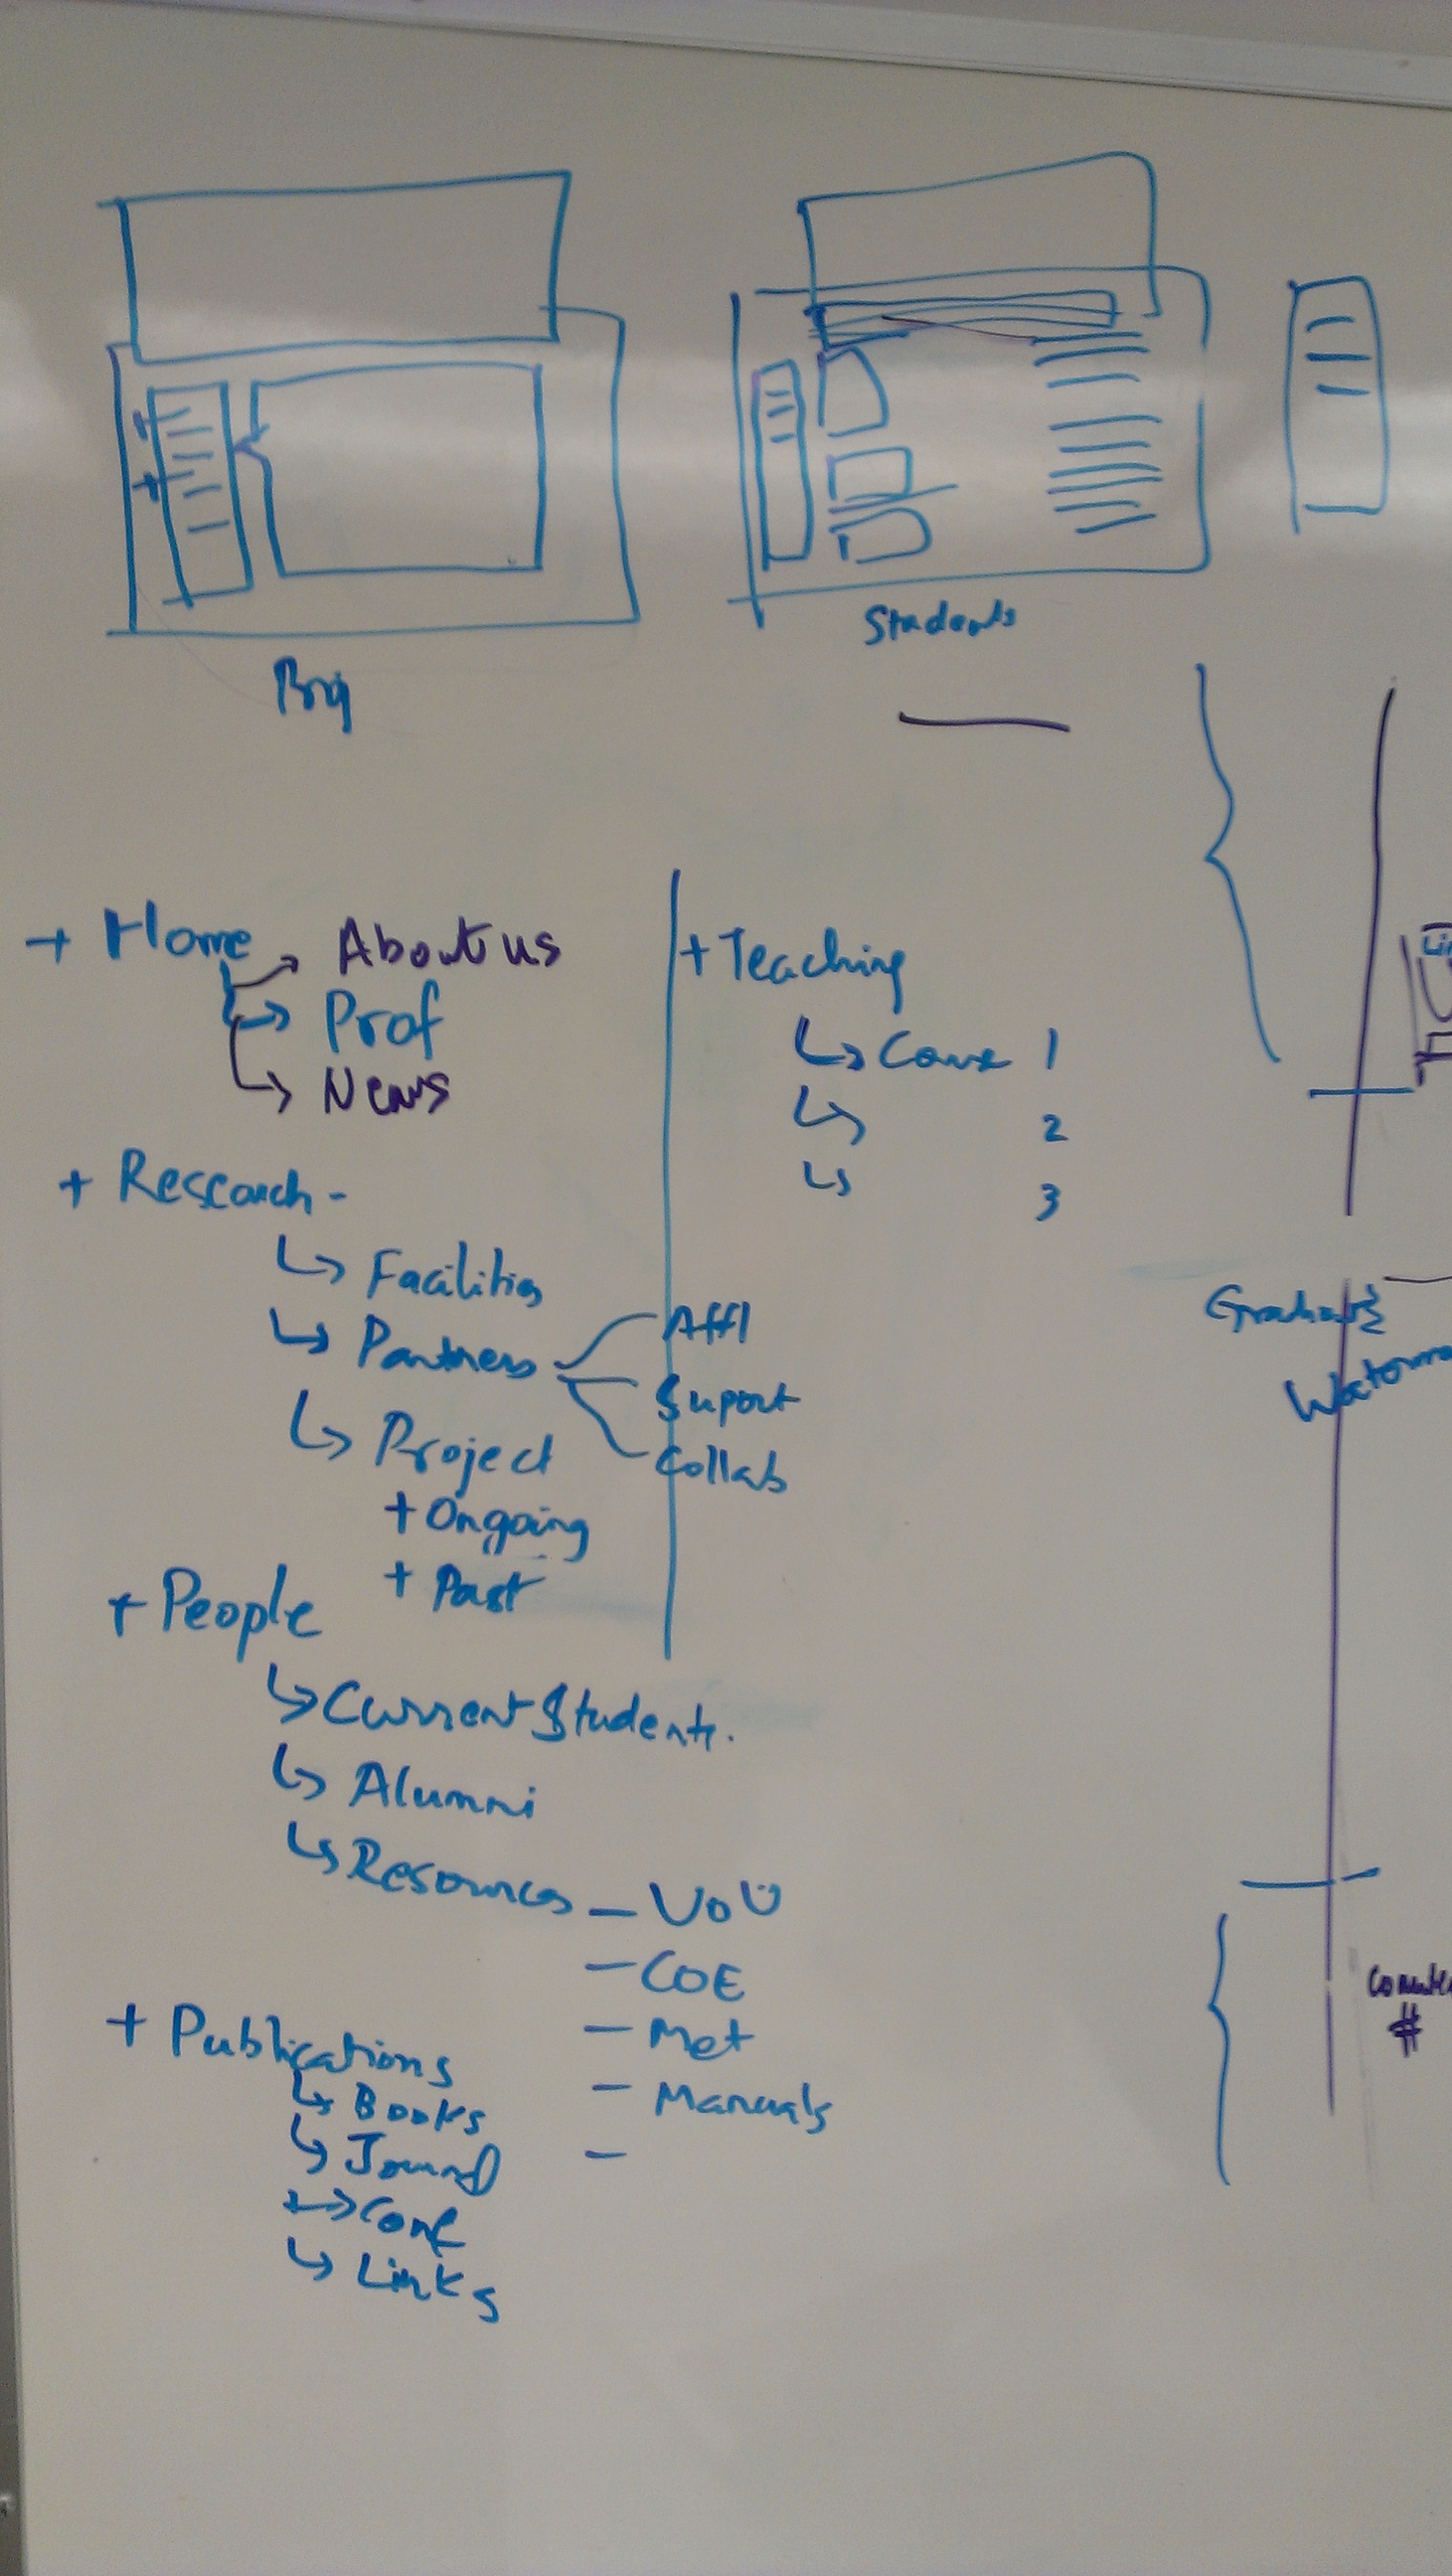 Students
+ Home → About us
→ Prof
→ News
+ Research -
↳ Facilities
↳ Partners
Affl
Suport
Collab
↳ Project
+ Ongoing
+ Past
+ People
↳ Current Students.
↳ Alumni
↳ Resources
- UoU
- COE
- Met
- Manuals
-
+ Publications
↳ Books
↳ Journal
→ Conf
↳ Links
+ Teaching
↳ Course 1
↳ 2
↳ 3
#